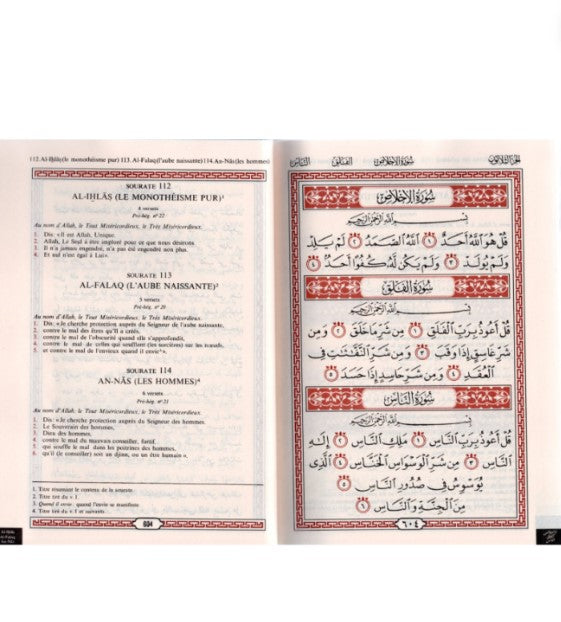 112.Al-Iḫlāṣ(le monothéisme pur) 113. Al-Falaq(l'aube naissante)114.An-Nās(les hommes)
SOURATE 112
AL-IḪLĀṢ (LE MONOTHÉISME PUR)¹
4 versets
Pré-hég. n° 22
Au nom d'Allah, le Tout Miséricordieux, le Très Miséricordieux.
1. Dis: «Il est Allah, Unique.
2. Allah, Le Seul à être imploré pour ce que nous désirons.
3. Il n'a jamais engendré, n'a pas été engendré non plus.
4. Et nul n'est égal à Lui».
SOURATE 113
AL-FALAQ (L'AUBE NAISSANTE)²
5 versets
Pré-hég. n° 20
Au nom d'Allah, le Tout Miséricordieux, le Très Miséricordieux.
1. Dis: «Je cherche protection auprès du Seigneur de l'aube naissante,
2. contre le mal des êtres qu'Il a créés,
3. contre le mal de l'obscurité quand elle s'approfondit,
4. contre le mal de celles qui soufflent (les sorcières) sur les nœuds,
5. et contre le mal de l'envieux quand il envie³».
SOURATE 114
AN-NĀS (LES HOMMES)⁴
6 versets
Pré-hég. n° 21
Au nom d'Allah, le Tout Miséricordieux, le Très Miséricordieux.
1. Dis: «Je cherche protection auprès du Seigneur des hommes.
2. Le Souverain des hommes,
3. Dieu des hommes,
4. contre le mal du mauvais conseiller, furtif,
5. qui souffle le mal dans les poitrines des hommes,
6. qu'il (le conseiller) soit un djinn, ou un être humain ».
1. Titre résumant le contenu de la sourate.
2. Titre tiré du v.1
3. Quand il envie: quand l'envie se manifeste.
4. Titre tiré du v.1 et suivants.
604
الجزء الثلاثون سورة الإخلاص الفلق الناس
سُورَةُ الإِخْلَاصِ
بِسْمِ اللَّهِ الرَّحْمَٰنِ الرَّحِيمِ
قُلْ هُوَ ٱللَّهُ أَحَدٌ ١ ٱللَّهُ ٱلصَّمَدُ ٢ لَمْ يَلِدْ
وَلَمْ يُولَدْ ٣ وَلَمْ يَكُن لَّهُۥ كُفُوًا أَحَدٌۢ ٤
سُورَةُ الفَلَقِ
بِسْمِ اللَّهِ الرَّحْمَٰنِ الرَّحِيمِ
قُلْ أَعُوذُ بِرَبِّ ٱلْفَلَقِ ١ مِن شَرِّ مَا خَلَقَ ٢ وَمِن
شَرِّ غَاسِقٍ إِذَا وَقَبَ ٣ وَمِن شَرِّ ٱلنَّفَّٰثَٰتِ فِى
ٱلْعُقَدِ ٤ وَمِن شَرِّ حَاسِدٍ إِذَا حَسَدَ ٥
سُورَةُ النَّاسِ
بِسْمِ اللَّهِ الرَّحْمَٰنِ الرَّحِيمِ
قُلْ أَعُوذُ بِرَبِّ ٱلنَّاسِ ١ مَلِكِ ٱلنَّاسِ ٢ إِلَٰهِ
ٱلنَّاسِ ٣ مِن شَرِّ ٱلْوَسْوَاسِ ٱلْخَنَّاسِ ٤ ٱلَّذِى
يُوَسْوِسُ فِى صُدُورِ ٱلنَّاسِ ٥
مِنَ ٱلْجِنَّةِ وَٱلنَّاسِ ٦
٦٠٤